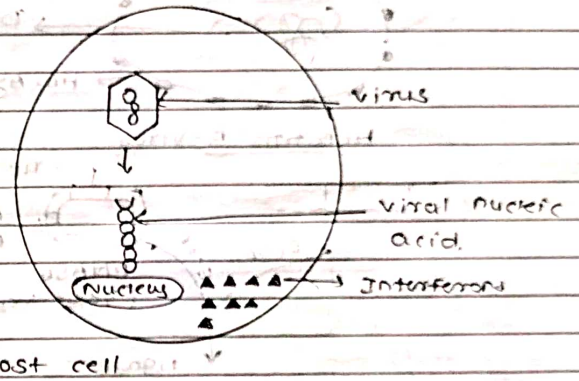 virus
viral nucleic
acid.
Nucleus
Interferons
ost cell